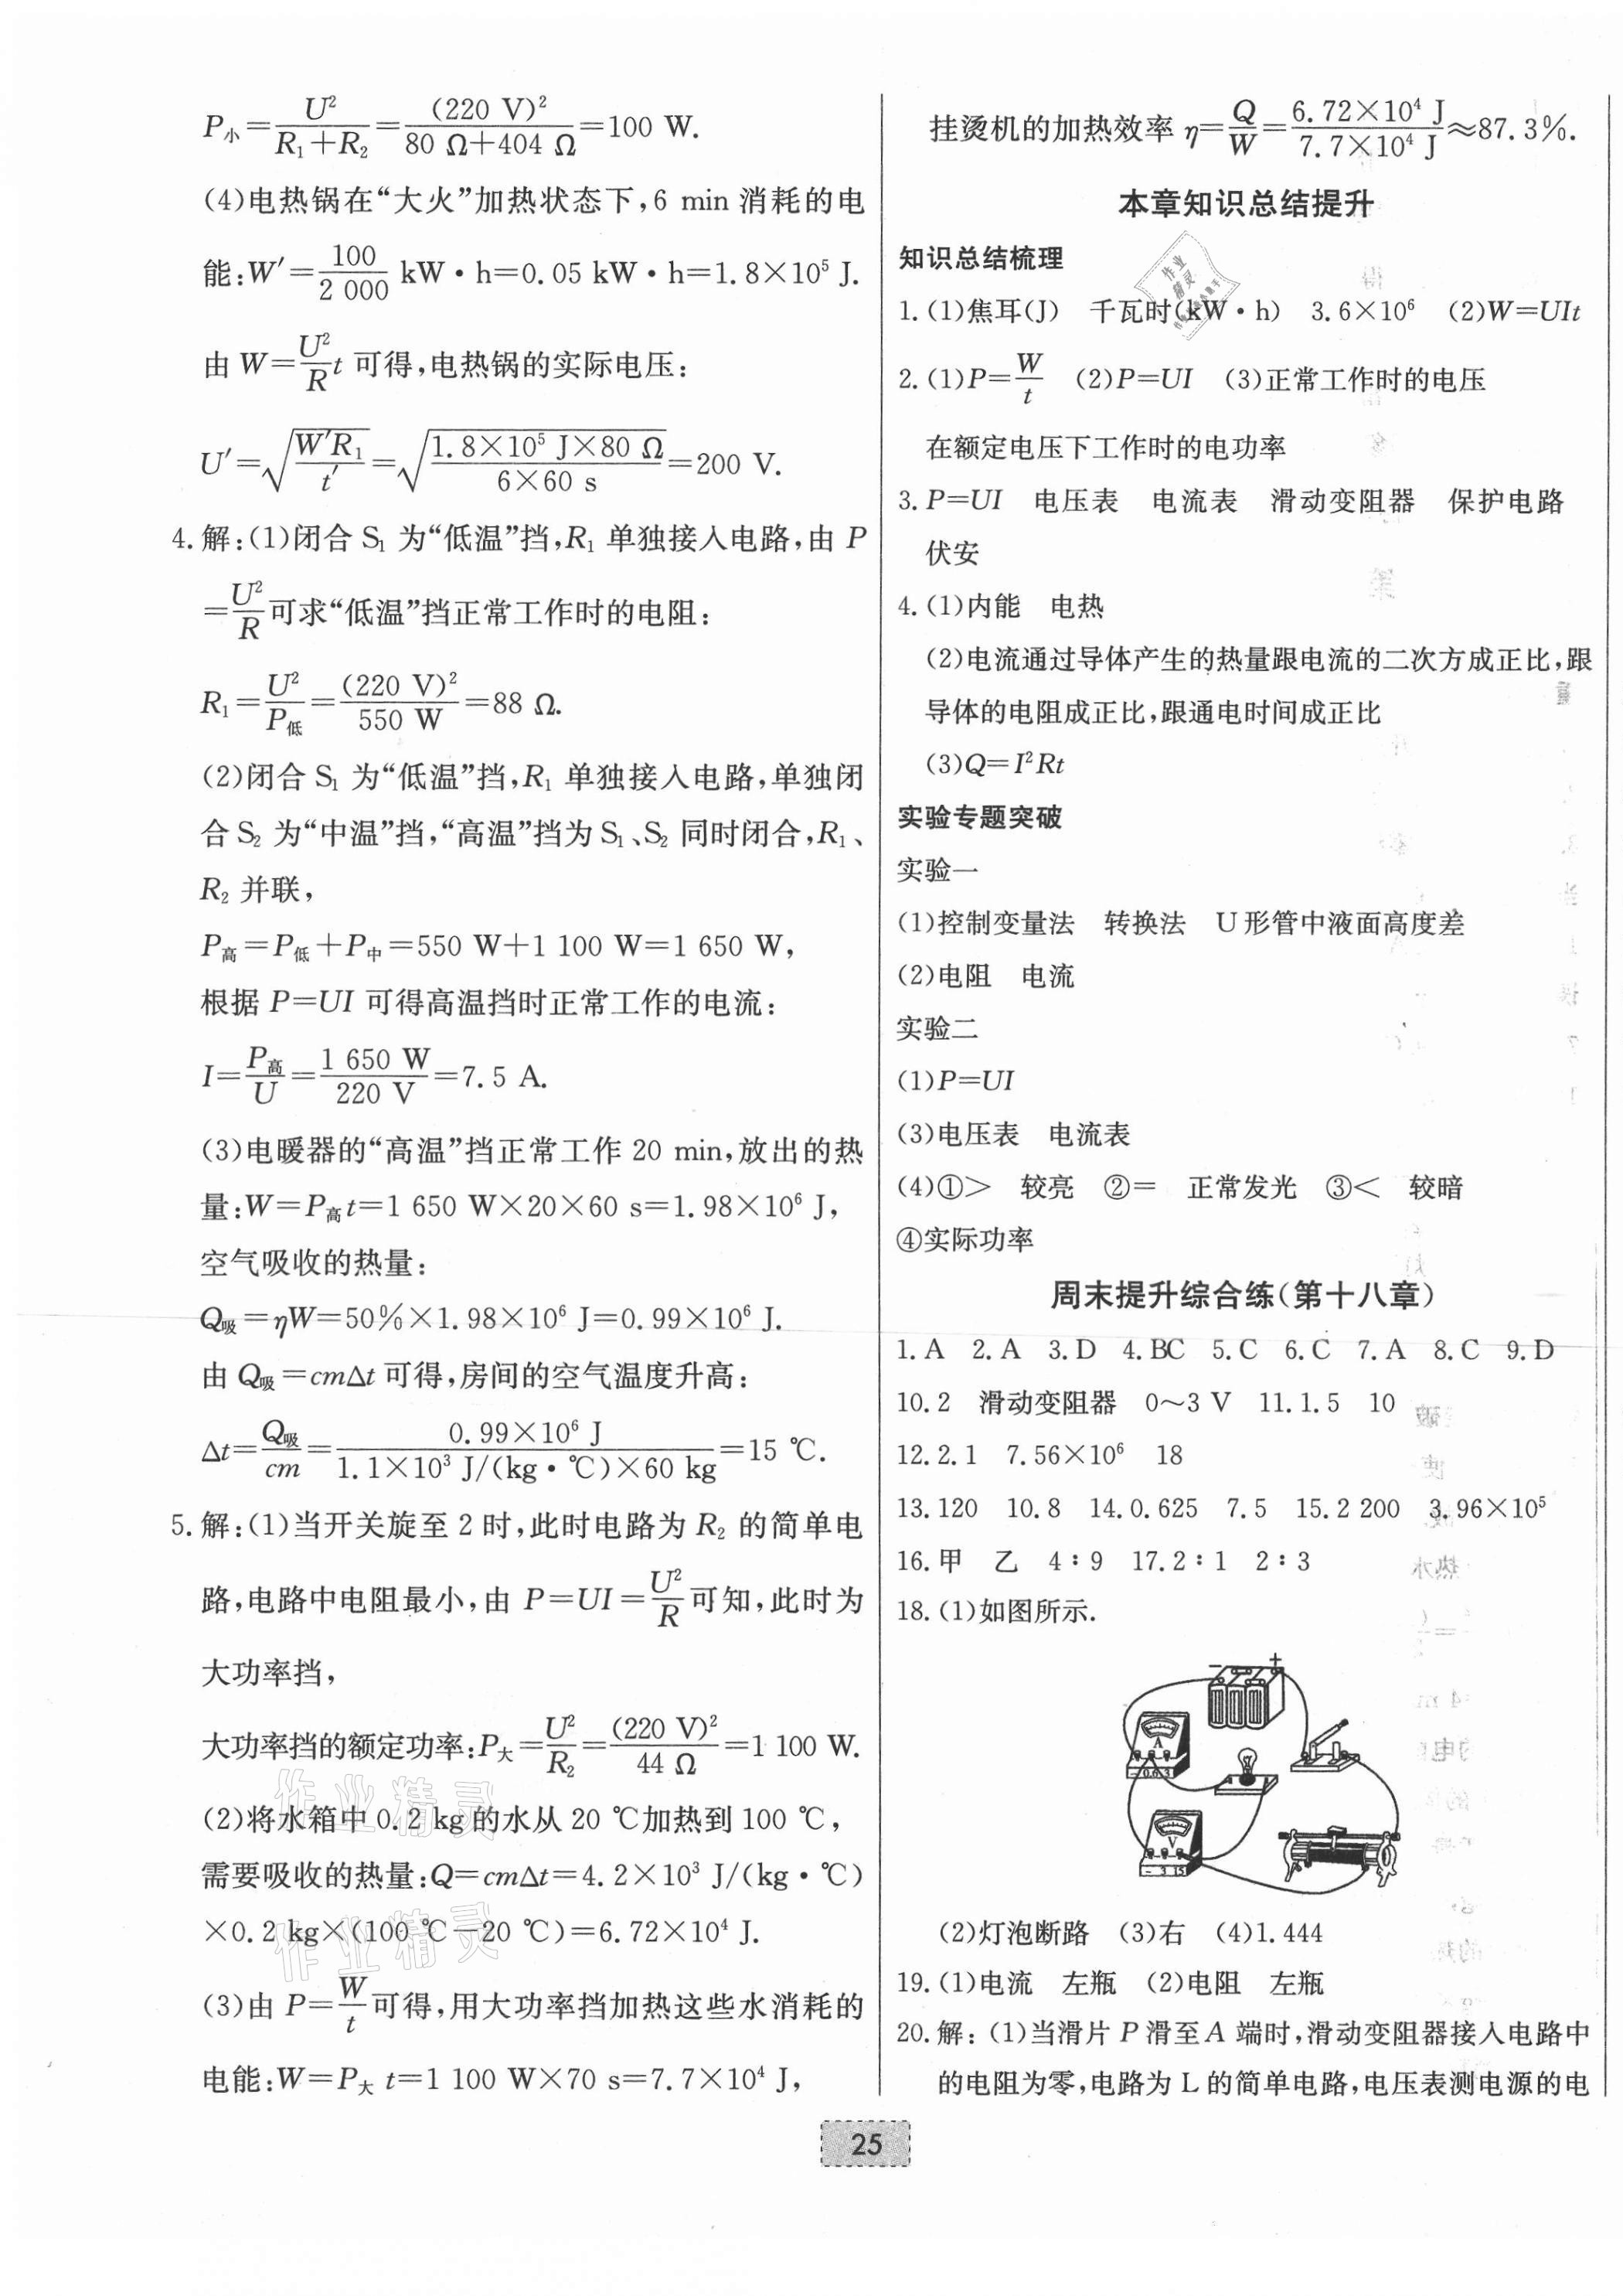 P小=U²/(R₁+R₂)=(220 V)²/(80 Ω+404 Ω)=100 W.
(4)电热锅在“大火”加热状态下,6 min 消耗的电
能:W′=100/2 000 kW·h=0.05 kW·h=1.8×10⁵ J.
由 W=U²/R t 可得,电热锅的实际电压:
U′=√(W′R₁/t′)=√(1.8×10⁵ J×80 Ω/(6×60 s))=200 V.
4.解:(1)闭合 S₁ 为“低温”挡,R₁ 单独接入电路,由 P
=U²/R可求“低温”挡正常工作时的电阻:
R₁=U²/P低=(220 V)²/550 W=88 Ω.
(2)闭合 S₁ 为“低温”挡,R₁ 单独接入电路,单独闭
合 S₂ 为“中温”挡,“高温”挡为 S₁、S₂ 同时闭合,R₁、
R₂ 并联,
P高=P低+P中=550 W+1 100 W=1 650 W,
根据 P=UI 可得高温挡时正常工作的电流:
I=P高/U=1 650 W/220 V=7.5 A.
(3)电暖器的“高温”挡正常工作 20 min,放出的热
量:W=P高t=1 650 W×20×60 s=1.98×10⁶ J,
空气吸收的热量:
Q吸=ηW=50%×1.98×10⁶ J=0.99×10⁶ J.
由 Q吸=cmΔt 可得,房间的空气温度升高:
Δt=Q吸/cm=0.99×10⁶ J/(1.1×10³ J/(kg·℃)×60 kg)=15 ℃.
5.解:(1)当开关旋至 2 时,此时电路为 R₂ 的简单电
路,电路中电阻最小,由 P=UI=U²/R可知,此时为
大功率挡,
大功率挡的额定功率:P大=U²/R₂=(220 V)²/44 Ω=1 100 W.
(2)将水箱中 0.2 kg的水从 20 ℃加热到 100 ℃,
需要吸收的热量:Q=cmΔt=4.2×10³ J/(kg·℃)
×0.2 kg×(100 ℃-20 ℃)=6.72×10⁴ J.
(3)由 P=W/t可得,用大功率挡加热这些水消耗的
电能:W=P大 t=1 100 W×70 s=7.7×10⁴ J,
挂烫机的加热效率 η=Q/W=6.72×10⁴ J/7.7×10⁴ J≈87.3%.
本章知识总结提升
知识总结梳理
1.(1)焦耳(J) 千瓦时(kW·h) 3.6×10⁶ (2)W=UIt
2.(1)P=W/t (2)P=UI (3)正常工作时的电压
在额定电压下工作时的电功率
3.P=UI 电压表 电流表 滑动变阻器 保护电路
伏安
4.(1)内能 电热
(2)电流通过导体产生的热量跟电流的二次方成正比,跟
导体的电阻成正比,跟通电时间成正比
(3)Q=I²Rt
实验专题突破
实验一
(1)控制变量法 转换法 U 形管中液面高度差
(2)电阻 电流
实验二
(1)P=UI
(3)电压表 电流表
(4)①> 较亮 ②= 正常发光 ③< 较暗
④实际功率
周末提升综合练(第十八章)
1.A 2.A 3.D 4.BC 5.C 6.C 7.A 8.C 9.D
10.2 滑动变阻器 0～3 V 11.1.5 10
12.2.1 7.56×10⁶ 18
13.120 10.8 14.0.625 7.5 15.2 200 3.96×10⁵
16.甲 乙 4∶9 17.2∶1 2∶3
18.(1)如图所示.
- +
A
- 0.6 3
V
- 3 15
(2)灯泡断路 (3)右 (4)1.444
19.(1)电流 左瓶 (2)电阻 左瓶
20.解:(1)当滑片 P 滑至 A 端时,滑动变阻器接入电路中
的电阻为零,电路为 L 的简单电路,电压表测电源的电
25
作业精灵
作业精灵
作业精灵